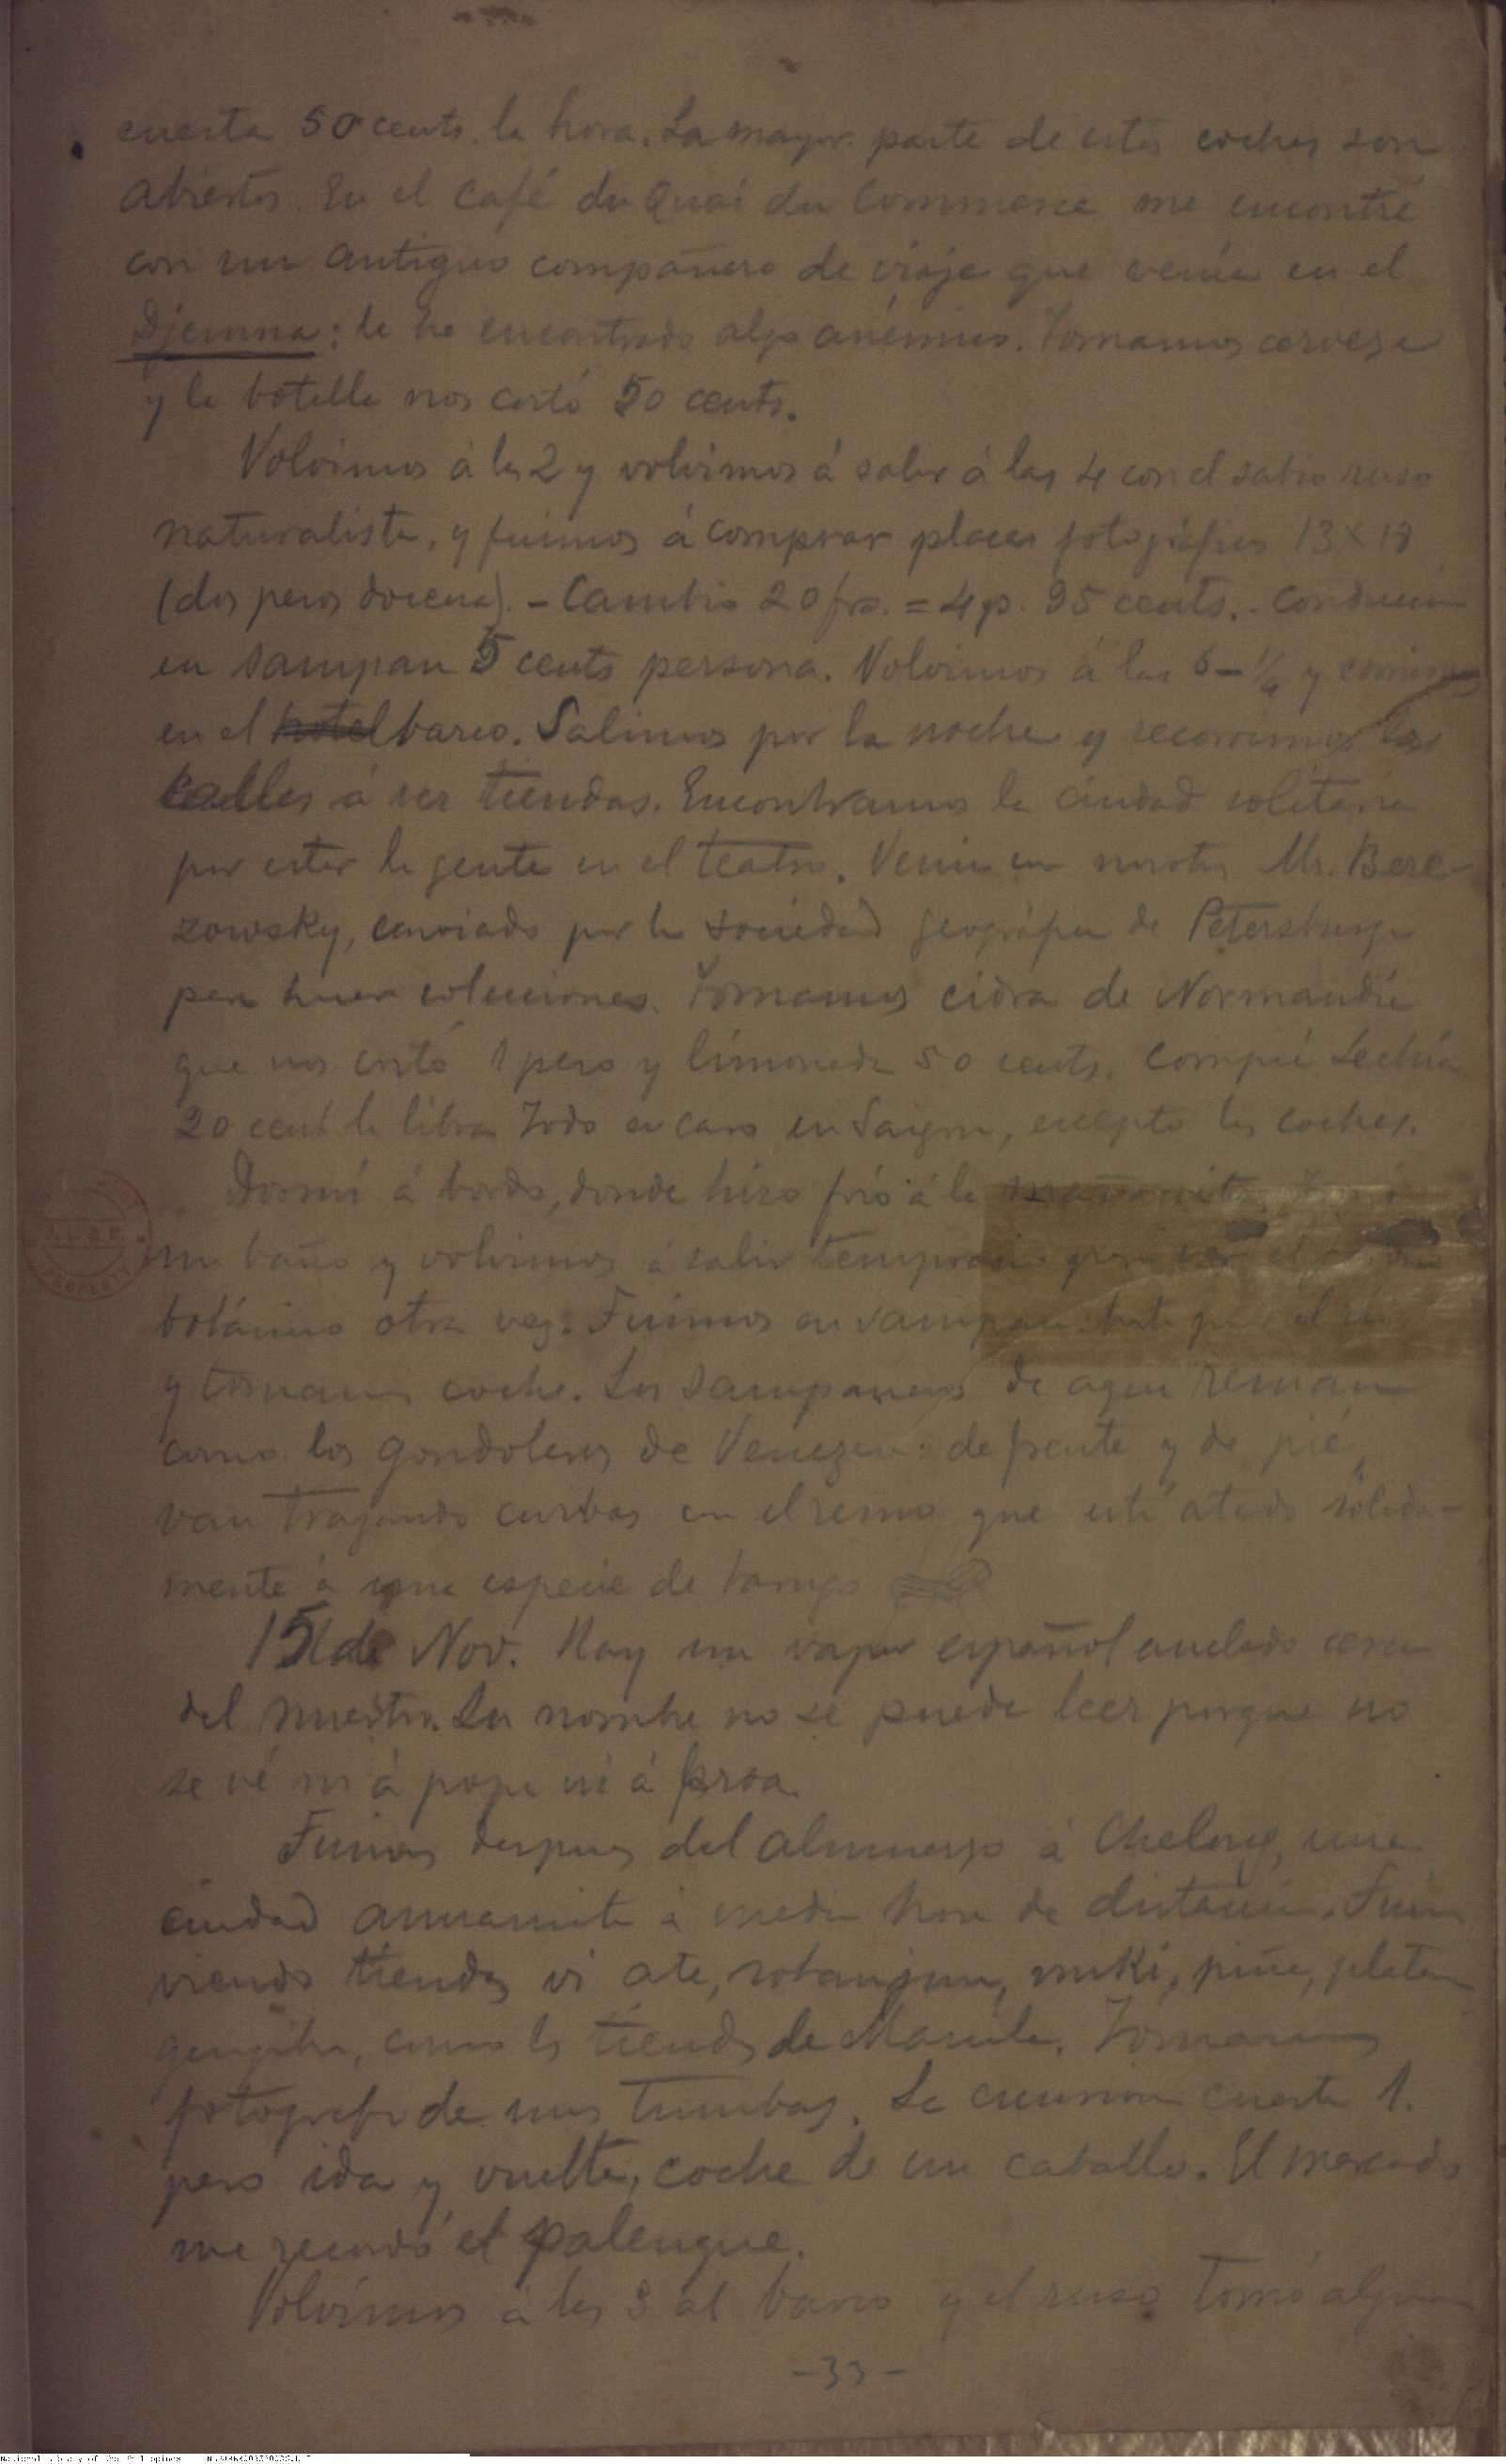 cuesta 50 cents. la hora. La mayor parte de estos coches son
abiertos. En el Café du Quai du Commerce me encontré
con un antiguo compañero de viaje que venia en el
Djemna: le he encontrado algo anémico. Tomamos cerveza
y la botella nos costó 50 cents.
Volvimos á las 2 y volvimos á salir á las 4 con el sabio ruso
naturalista, y fuimos á comprar placas fotográficas 13 x 18
(dos pesos docena). - Cambio 20 frs. = 4 p. 95 cents. - Conducción
en sampan 5 cents persona. Volvimos á las 6 - 1/4 y comimos
en el hotel barco. Salimos por la noche y recorrimos las
calles á ver tiendas. Encontramos la ciudad solitaria
por estar la gente en el teatro. Venia con nosotros Mr. Bere-
zowsky, enviado por la sociedad geográfica de Petersburgo
para hacer colecciones. Tomamos cidra de Normandia
que nos costó 1 peso y limonada 50 cents. Compré Lechias
20 cent. la libra Todo es caro en Saigon, excepto los coches.
Dormí á bordo, donde hizo frio á la mañanita.
un baño y volvimos á salir temprano para ver el
botánico otra vez. Fuimos en sampan hasta por el rio
y tomamos coche. Los sampaneros de aqui reman
como los gondoleros de Venezia: de frente y de pié,
van trazando curbas con el remo que está atado sólida-
mente á una especie de banço
15 de Nov. Hay un vapor español anclado cerca
del nuestro. Su nombre no se puede leer porque no
se vé ni á popa ni á proa.
Fuimos despues del almuerzo á Chelong, una
ciudad annamita á media hora de distancia. Fuimos
viendo tiendas vi ate, sotanjun, miki, piña, platano
gengibre, como las tiendas de Manila. Tomamos
fotografia de unas tumbas. La excursion cuesta 1.
peso ida y vuelta, coche de un caballo. El mercado
me recordó el palenque.
Volvimos á las 3 al barco y el ruso tomó algunas
- 33 -